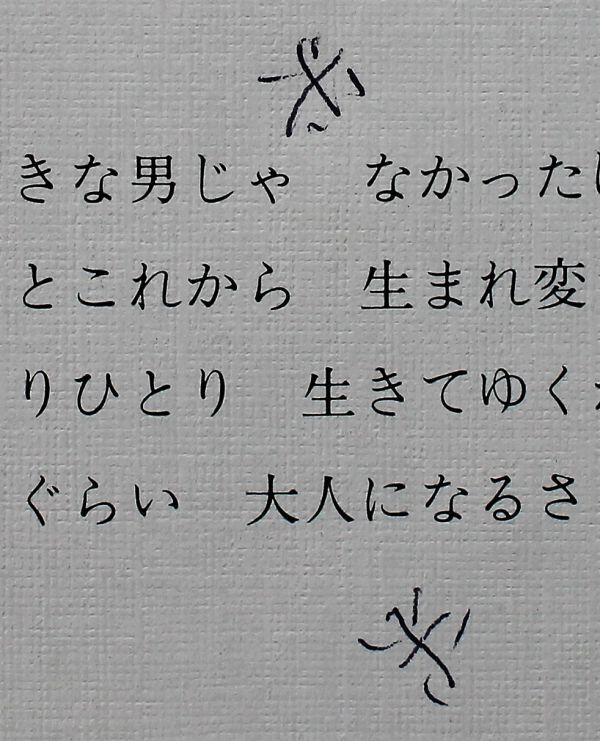 きな男じゃ　なかった
とこれから　生まれ変
りひとり　生きてゆく
ぐらい　大人になるさ